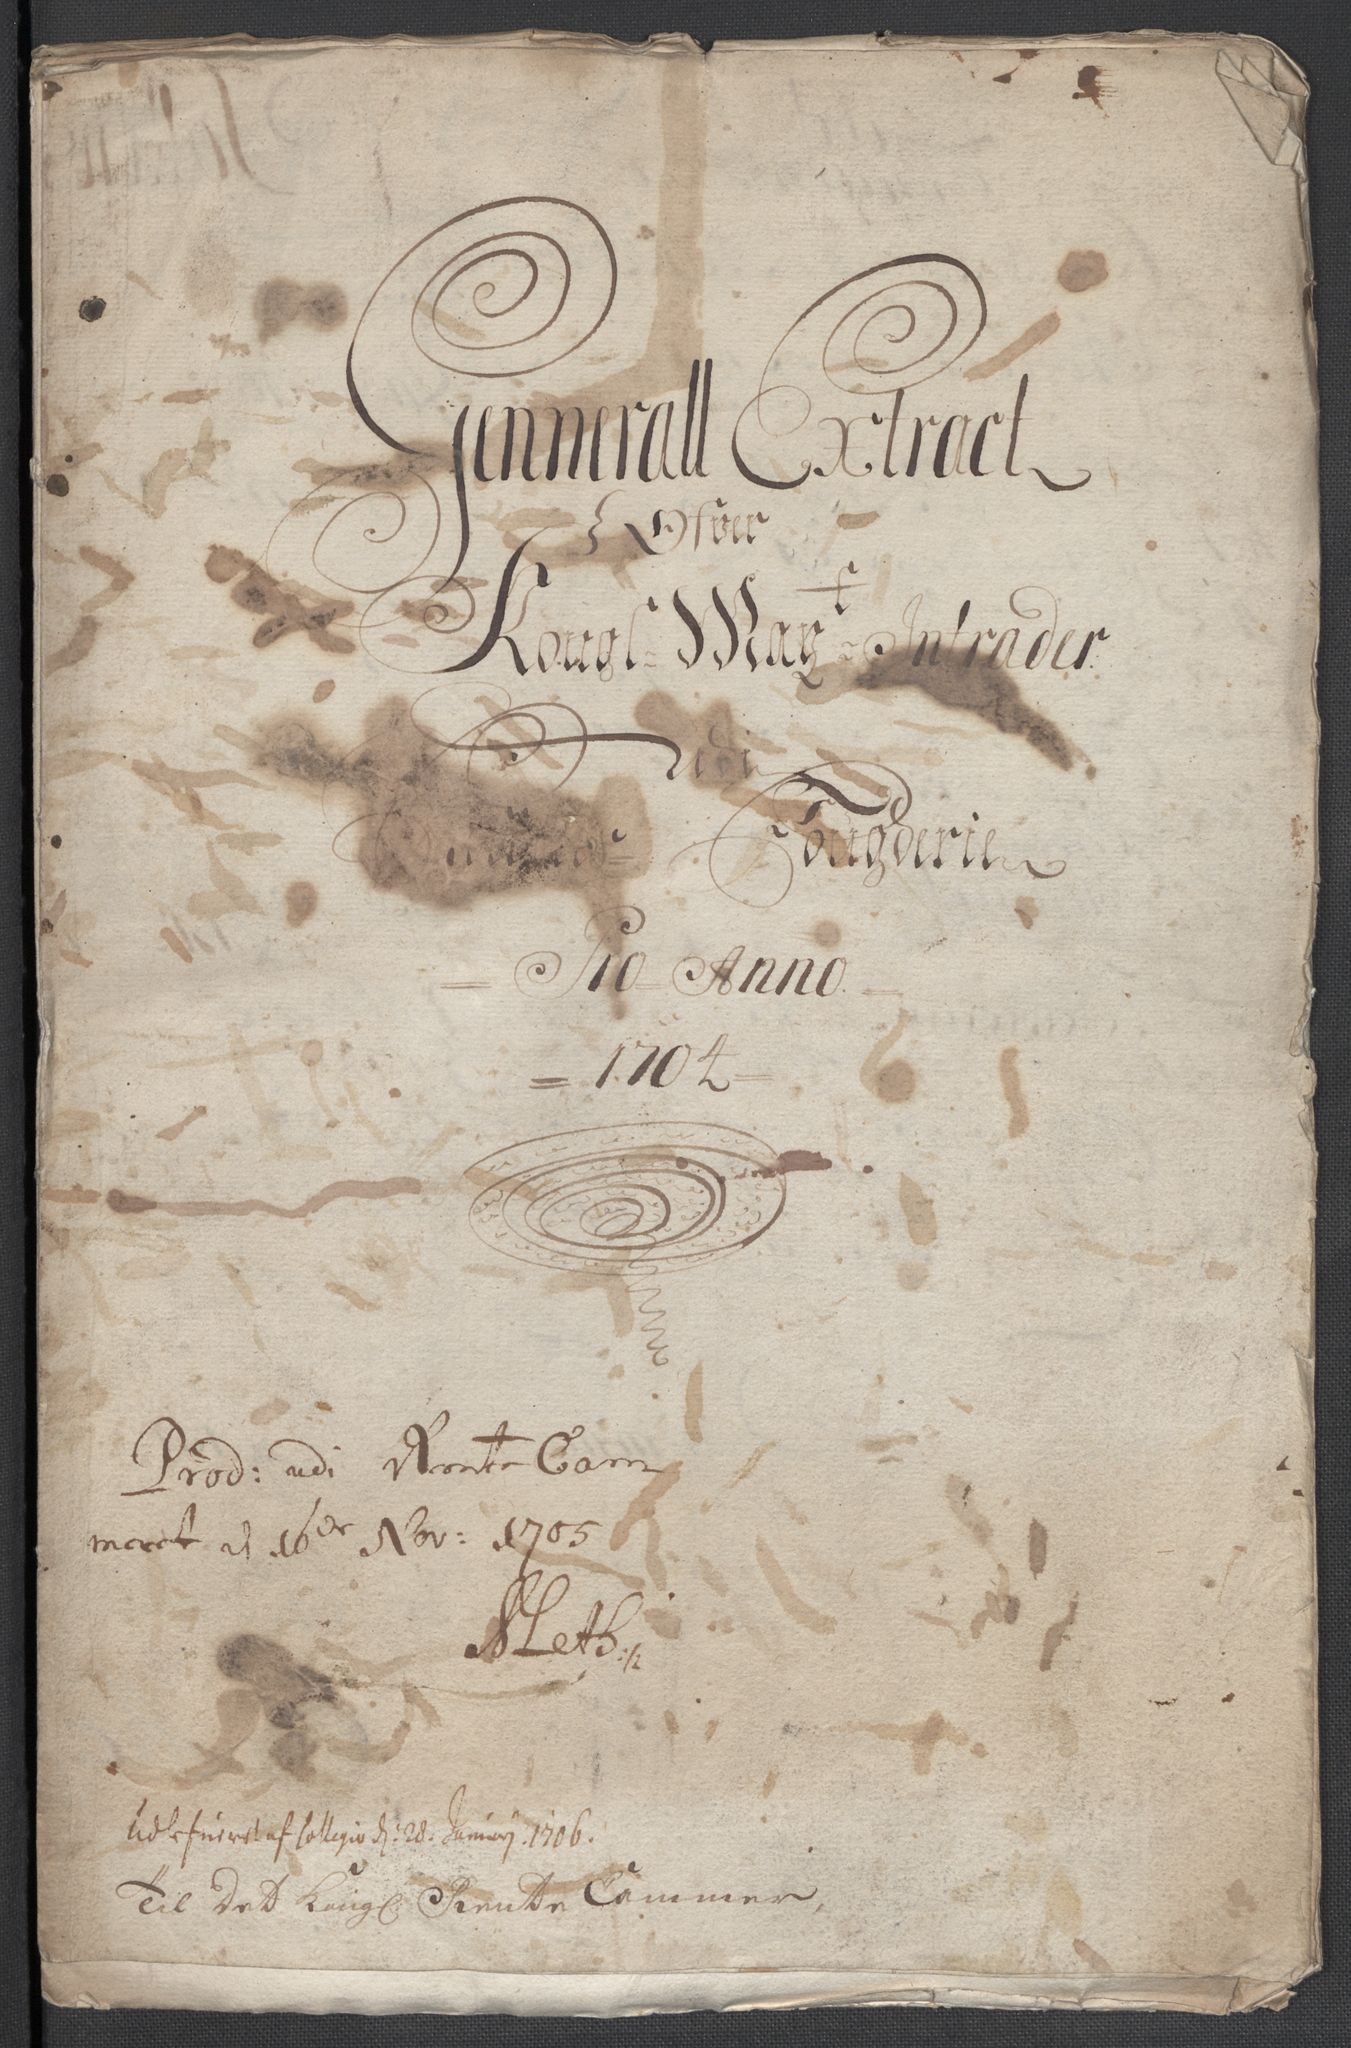 Gennerall Extract
Ofver
Kongl: May:t Intrader
udi
Fougderie
Pro Anno
1704
Prod: udi Rente Cam
meret d 16de Nov: 1705
Udlefueret af Collegio d: 28. Januarij. 1706.
Til Det Kongl: Rente Cammer,